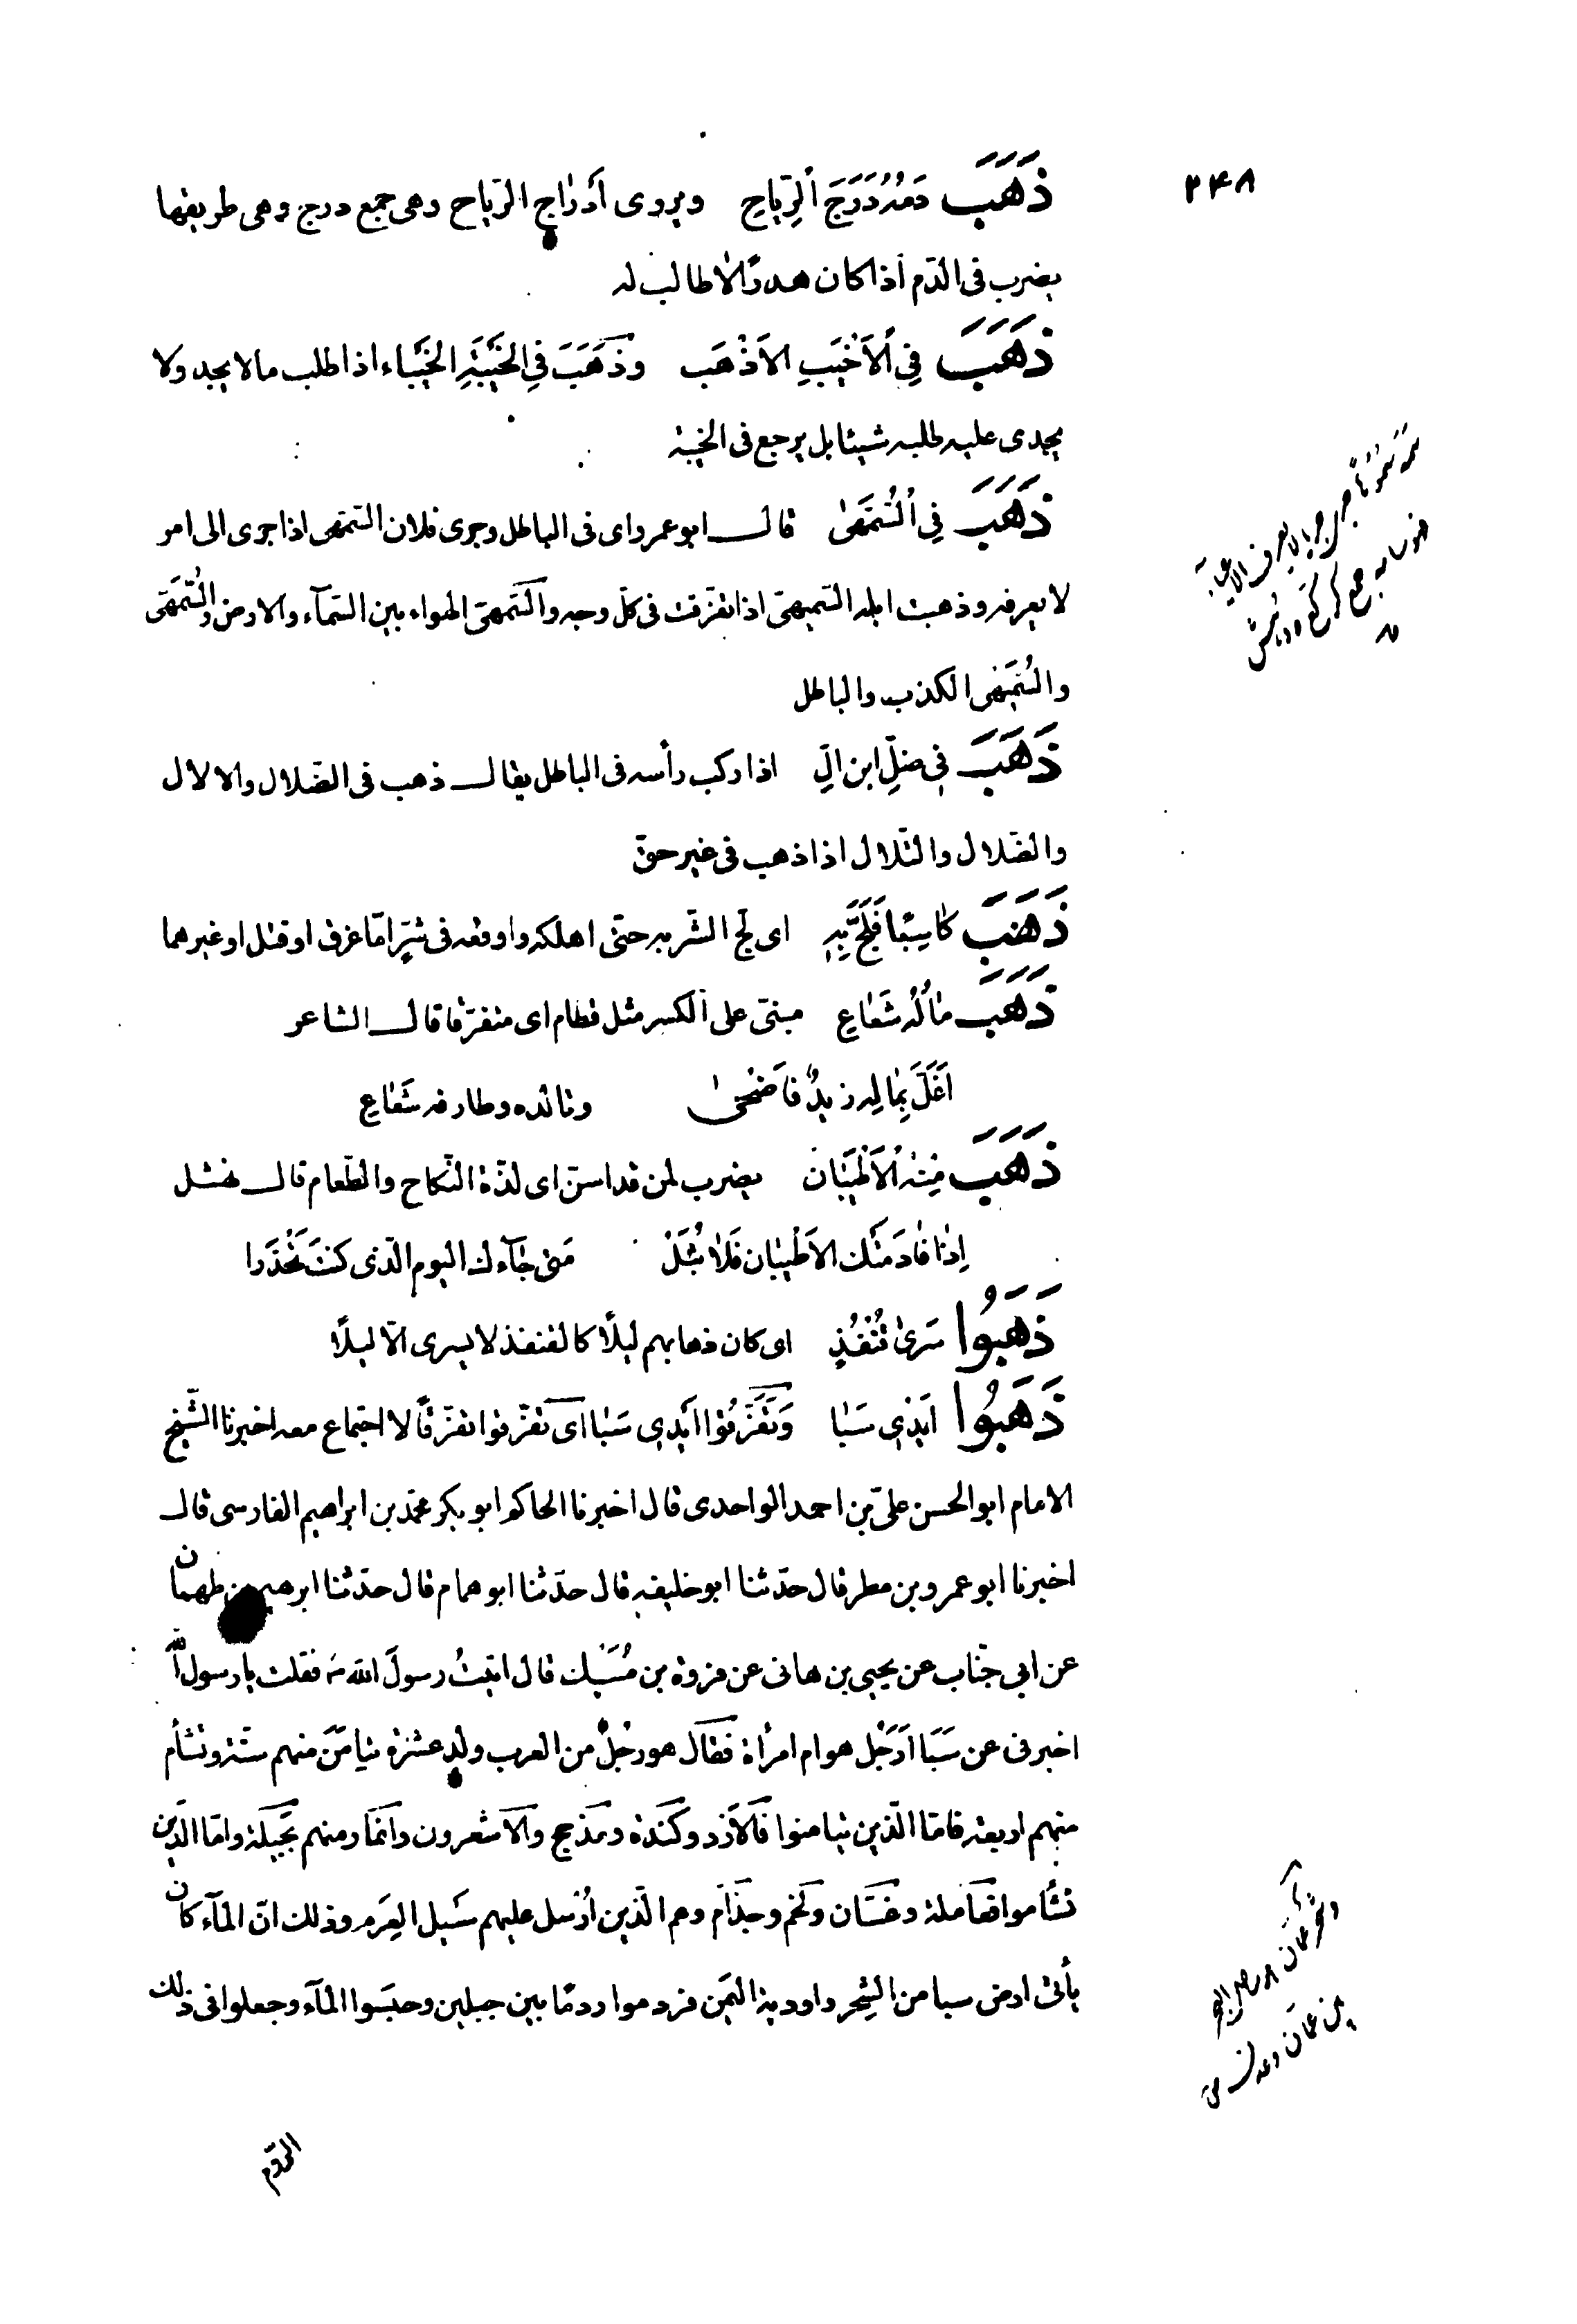 ٢۴٨
ذَهَبَ دَمُهُ دَرَجَ ٱلرِّیَاحِ ویروی أَدْرَاجِ الریاح وهی جمع درج وهی طریقها
یضرب فی الدّم اذا کان هدرًا لا طالب له
ذَهَبَ فِی ٱلْاَخْیَبِ الاَذْهَب وذَهَبَ فِی الخَیْبَةِ الخَیْبَاء اذا طلب ما لا یجد ولا
یجدی علیه طلبه شیئا بل یرجع فی الخیبة
ذَهَبَ فِی ٱلسُّمَّهٰی قال ابو عمرو ای فی الباطل وجری فلان السّمّهی اذا جری الی امر
لا یعرفه وذهبت ابله السّمیهی اذا تفرّقت فی کلّ وجه والسّمّهی الهواء بین السّمآء والارض والسُّمَّهَی
والسُّمَّیْهی الکذب والباطل
ذَهَبَ فی ضلِّ ابن الِّ اذا رکب رأسه فی الباطل یقال ذهب فی الضّلال والالال
والضّلال والتّلال اذا ذهب فی غیر حقّ
ذَهَبَ کَاسِبًا فَلَجَّ بِهِ ای لجّ الشّرّ به حتّی اهلکه واوقعه فی شرٍّ امّا غرق او قتل او غیرهما
ذَهَبَ مَالُهُ شَعَاعِ مبنیّ علی الکسر مثل قطام ای متفرّقا قال الشاعر
اَغَلَّ بِمَالِهِ زیدٌ فاَضْحٰی وتالده وطارفه شَعَاعِ
ذَهَبَ مِنْهُ ٱلْاَطْیَبَان یضرب لمن قد اسنّ ای لذّة النّکاح والطّعام قال نهشل
اِذَا فَادَ مَنْکَ الاَطْیَبَان فَلَا تُبَلْ مَتی جَآءک الیوم الّذی کنتَ تَحْذَرا
ذَهَبُوا سَریٰ قُنْفُذٍ ای کان ذهابهم لیلًا کالقنفذ لا یسری الّا لیلًا
ذَهَبُوا اَیْدِی سَبَا وَتَفَرَّقُوْا اَیْدِی سَبَا ای تفرّقوا تفرّقاً لا اجتماع معه اخبرنا الشّیخ
الامام ابو الحسن علیّ بن احمد الواحدی قال اخبرنا الحاکم ابو بکر محمّد بن ابراهیم الفارسی قال
اخبرنا ابو عمرو بن مطر قال حدّثنا ابو خلیفه قال حدّثنا ابو همام قال حدّثنا ابرهیم بن طهمان
عن ابی جنّاب عن یحیی بن هانی عن فروة بن مُسَیْک قال اتیتُ رسولَ الله ص فقلت یا رسول الله
اخبرنی عن سَبَا اَرَجُل هو ام امرأة فقال هو رجُلٌ من العرب ولد عشرة تیامَنَ منهم ستّة وتشأم
منهم اربعة فامّا الّذین تیامنوا فالاَزد وکندة ومذحج والاشعرون وانمار ومنهم بَجیلة وامّا الّذین
تشأموا فعاملة وغسّان ولخم وجذام وهم الّذین اُرْسل علیهم سَیْل العِرَم وذلک انّ المآء کان
یأتی ارض سبا من الشِحر واودیة الیَمَن فردموا ردمًا بین جبلین وحبَسوا المآء وجعلوا فی ذلک
الردم